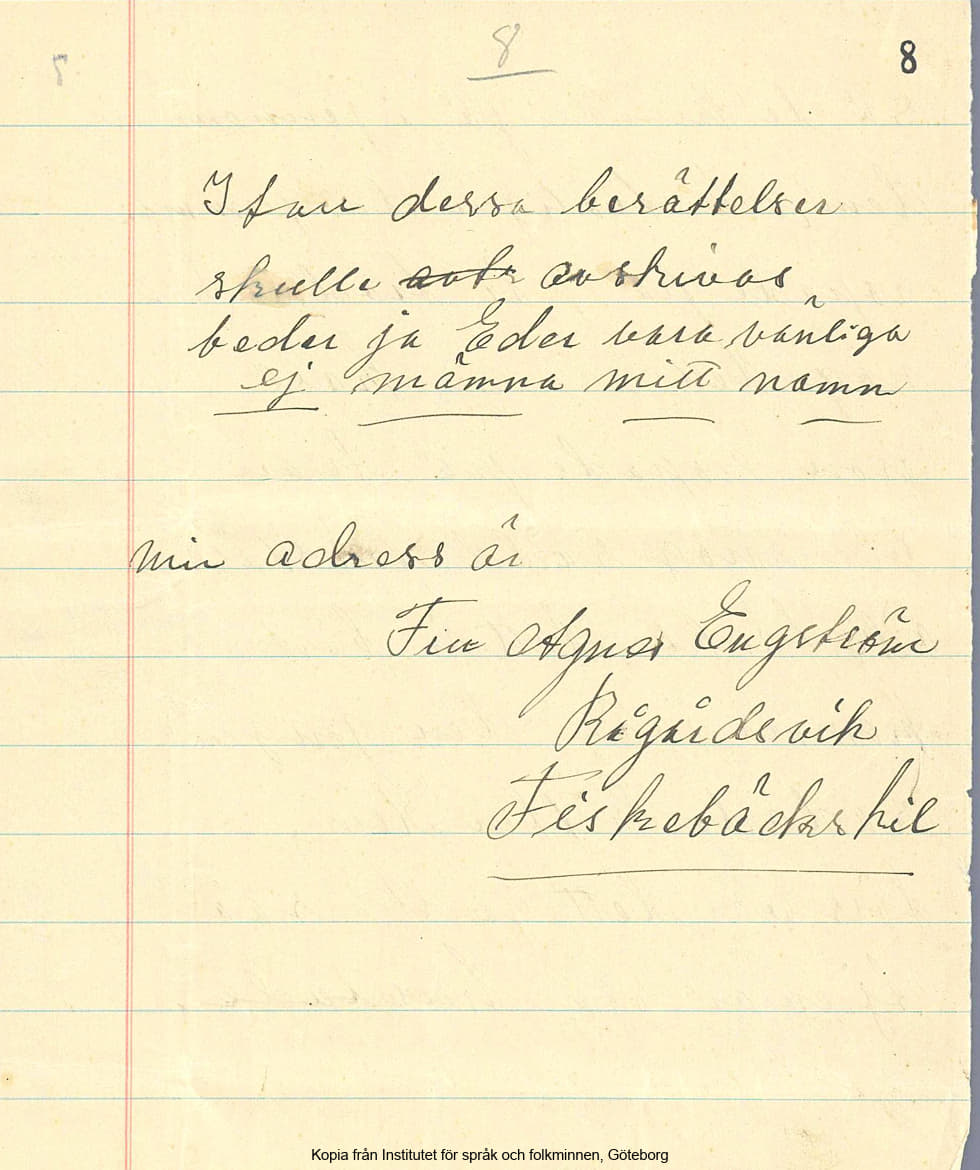 8
8
Ifan dessa berättelser
skulle avskrivas
beder ja Eder vara vänliga
ej nämna mitt namn
min adress är
Fru Agnes Engström
Rågårdsvik
Fiskebäckskil
Kopia från Institutet för språk och folkminnen, Göteborg